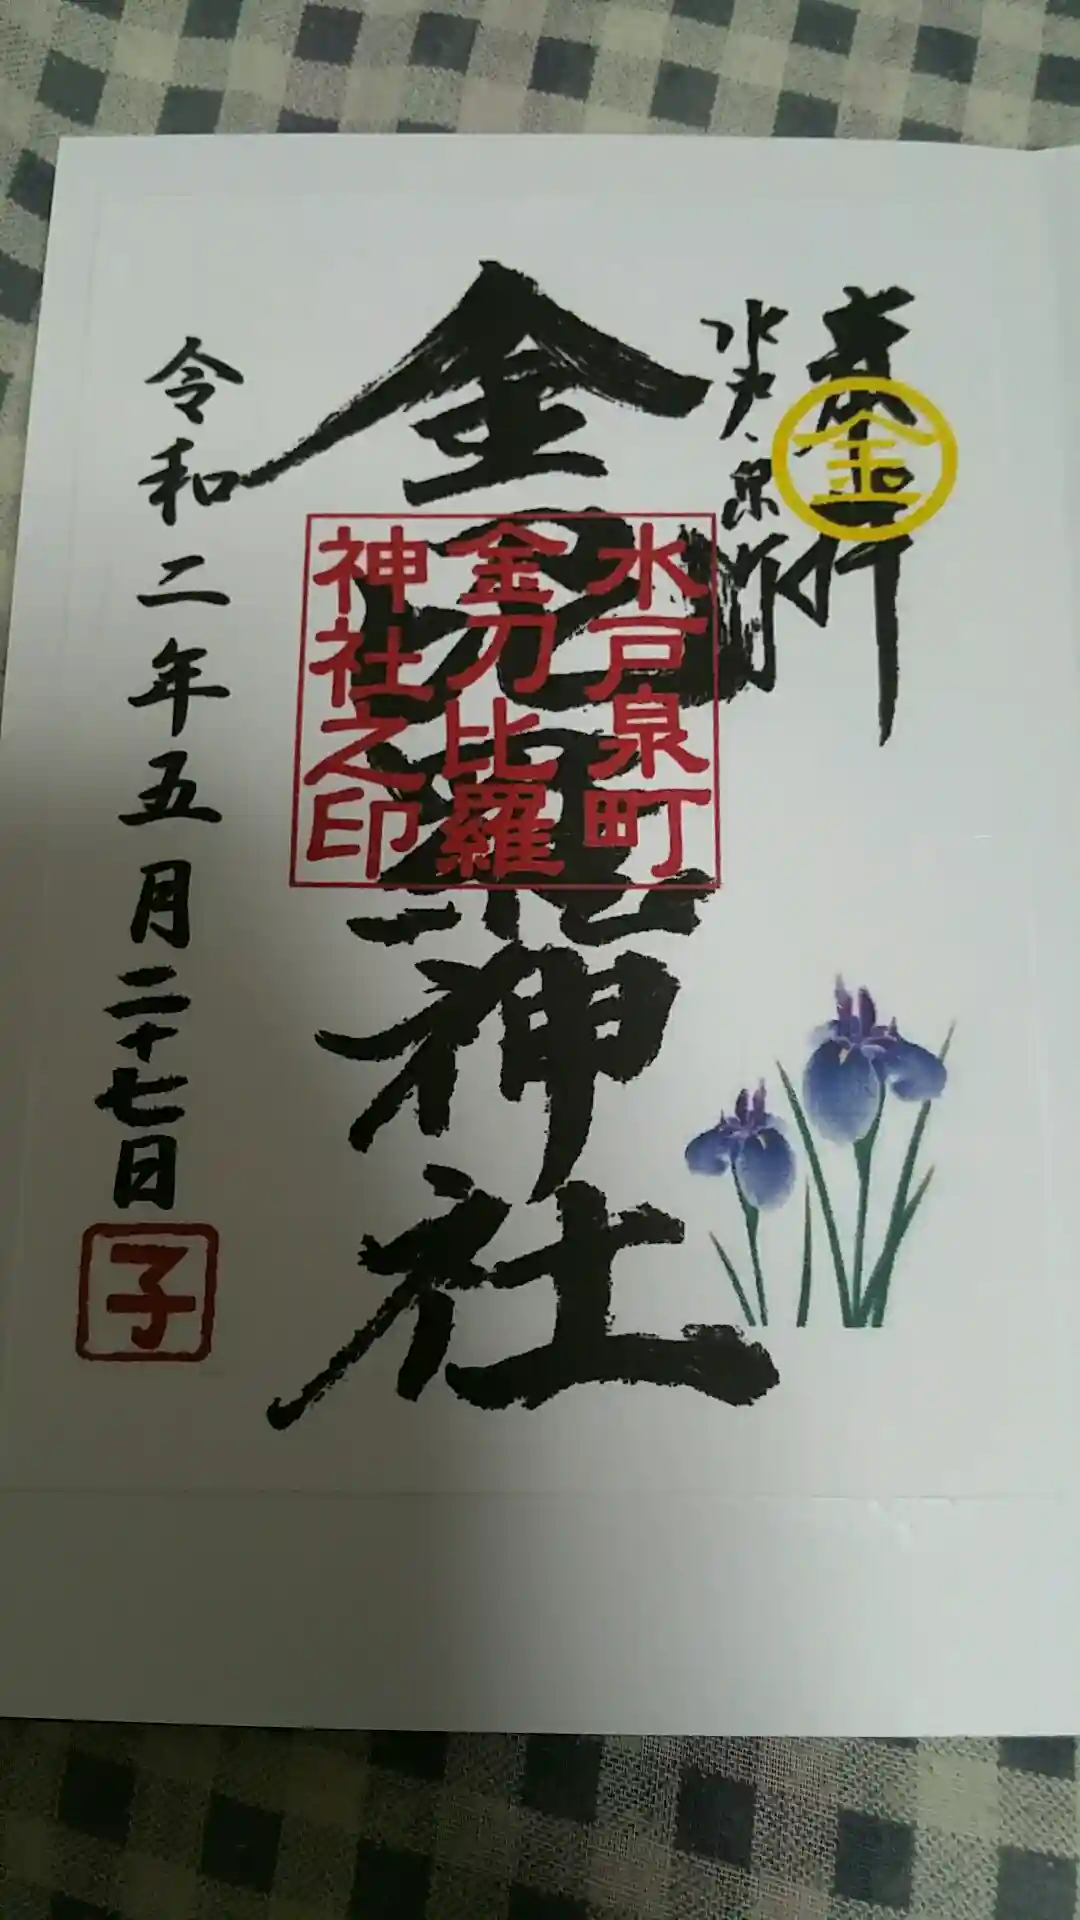 奉拝
金
水戸泉町
金刀比羅神社
水戸泉町
金刀比羅
神社之印
令和二年五月二十七日
子